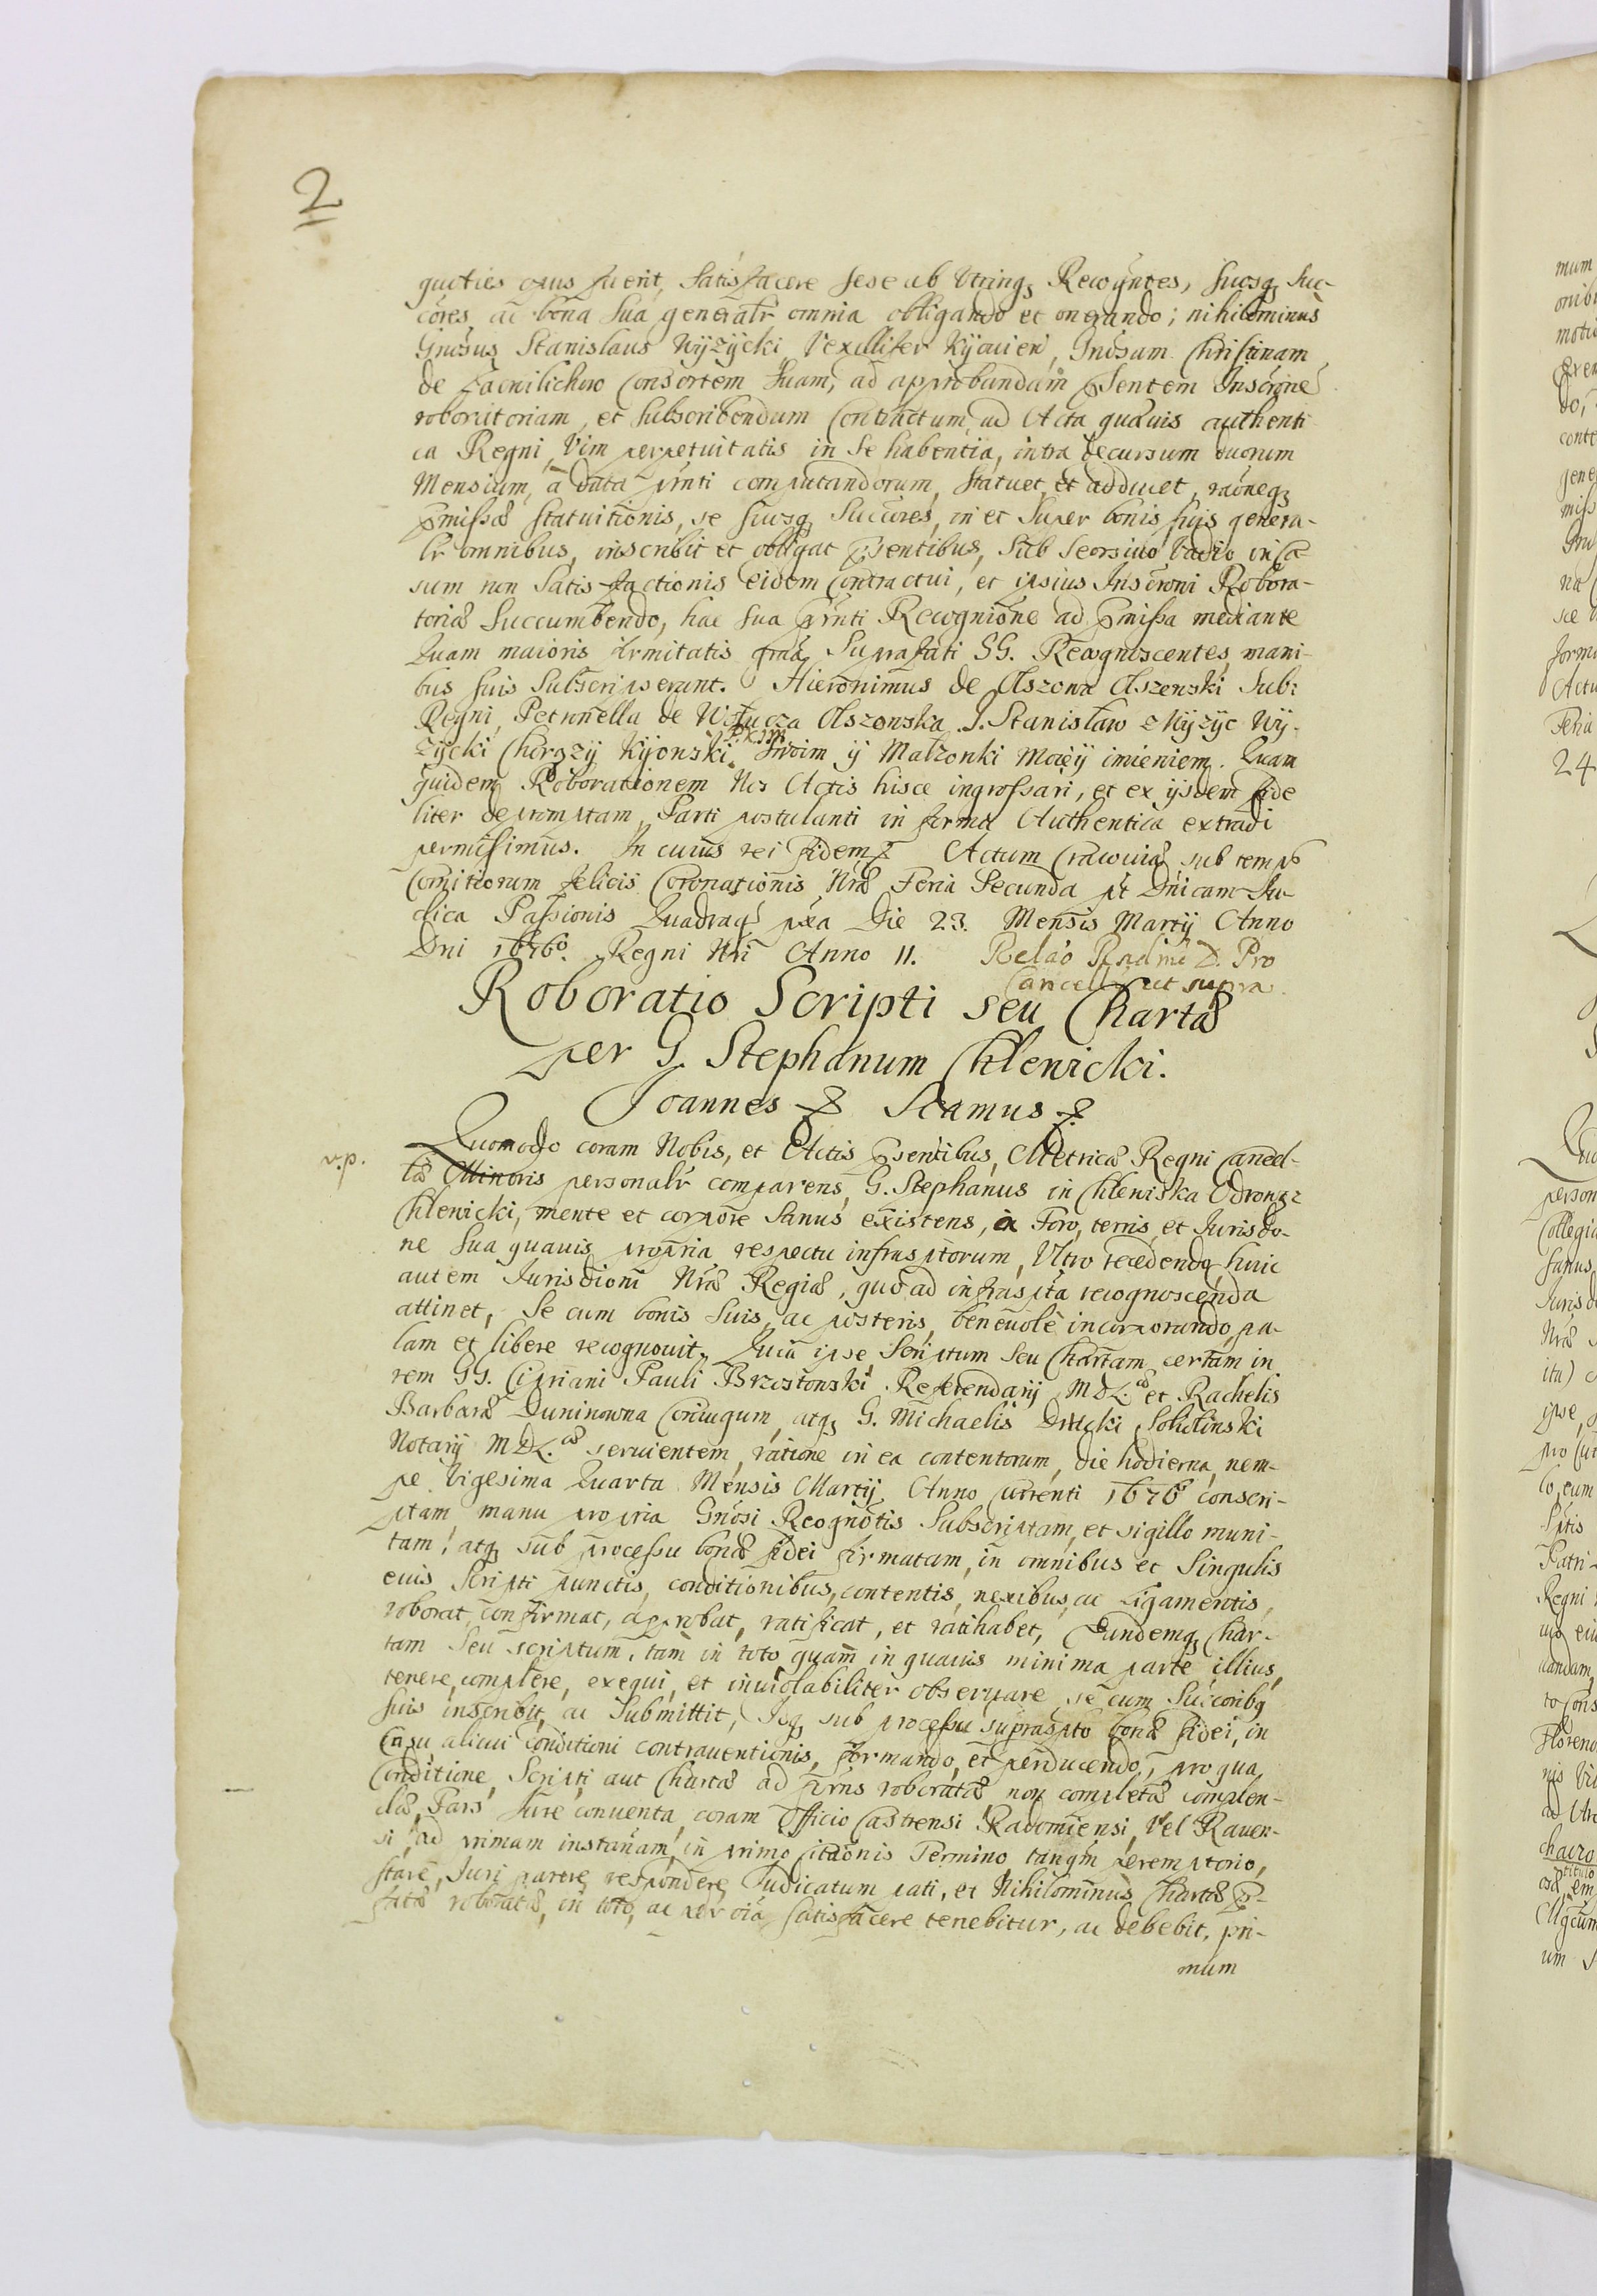 2
quoties opus fuerit, satisfacere sese ab utrinq3 Recogntes, suosq3 suc-
cores, ac bona sua generalr omnia obligando et onerando; nihilominus
Gnosus Stanislaus Wyżycki Vexillifer Kijouien, Gnosam Christinam
de Zacnilichow Consortem suam, ad approbandam psentem Inscrone
roboratoriam, et subscribendum Contractum, ad Acta quauis authenti
ca Regni, Vim perpetuitatis in se habentia, intra decursum duorum
Mensium, à data prnti computandorum, statuet, et adducet, raoneq3
pmissæ statuitionis, se suosq3 succores, in et super bonis suis genera-
lr omnibus, inscribit et obligat psentibus, sub seorsiuo Vadio in ca
sum non satis-factionis eidem Contractui, et ipsius Inscroni Robora-
toriæ succumbendo, hac sua prnti Recognitione ad pmissa mediante
Quam maioris firmitatis graa, Suprafati GG. Recognoscentes, mani-
bus suis subscripserunt. Hieronimus de Olszowa Olszowski Sub:
Regni, Petronella de Olszowska. J. Stanisław z Wyżyc Wy-
P. K. im
życki Chorąży Kijowski. swoim y Małżonki moiey imieniem. Quam
quidem Roborationem Nos Actis hisce ingrossari, et ex ijsdem fide
liter depromptam, Parti postulanti in forma Authentica extradi
permisimus. In cuius rei fidem Actum Cracouiæ sub temps
Comitiorum felicis Coronationis Nræ Feria Secunda pt Dnicam Ju-
dica Passionis Quadrag pxa Die 23. Mensis Martij Anno
Dni 1676o. Regni Nri Anno II. Relao Rndmi D. Pro
Cancell: ut supra.
Roboratio Scripti seu Chartæ
per G. Stephanum Chlewicki.
Joannes Scamus
v.p. Quomodo coram Nobis, et Actis psentibus, Metricæ Regni Cancel-
læ Minoris personalr comparens, G. Stephanus in Chlewiska Odrowąz
Chlewicki, mente et corpore sanus existens, à Foro, terris, et Jurisdo-
ne sua quauis propria respectu infrasptorum, Vltro recedendo, huic
autem Jurisdioni Nræ Regiæ, quo ad infraspta recognoscenda
attinet, se cum bonis suis, ac posteris, beneuolè incorporando, pa-
lam et libere recognouit. Quia ipse Scriptum seu Chartam certam in
rem GG. Cipriani Pauli Brzostowski Referendarij MDL. et Rachelis
Barbaræ Duninowna Coniugum, atq3 G. Michaelis Drucki Sokolinski
Notarij MDL. seruientem, ratione in ea contentorum, die hodierna, nem-
pe Vigesima Quarta Mensis Martij Anno Currenti 1676o conscri-
ptam manu propria Gnosi Recognotis subscriptam, et sigillo muni-
tam, atq3 sub processu bonæ fidei firmatam, in omnibus et singulis
eius scripti punctis, conditionibus, contentis, nexibus, ac ligamentis,
roborat, confirmat, approbat, ratificat, et ratihabet, Eundemq3 Char-
tam seu scriptum, tam in toto quam in quauis minima parte illius,
tenere, complere, exequi, et inuiolabiliter obseruare, se cum succoribq
suis inscribit, ac submittit, Idq3 sub processu suprasspto bonæ fidei, in
Casu alicui Conditioni contrauentionis, formando, et perducendo, pro qua
Conditione, Scripti aut Chartæ ad prns roboratæ, non completæ complen-
dæ, Pars Jure conuenta, coram Officio Castrensi Radomiensi, Vel Rauen-
si, ad primam instanam, in primo citaonis Termino, tanqm peremptorio,
stare, Juri parere, respondere, Judicatum pati, et Nihilominus Chartæ p-
fatæ roboratæ, in toto, ac per oia, satisfacere tenebitur, ac debebit, pri-
mum